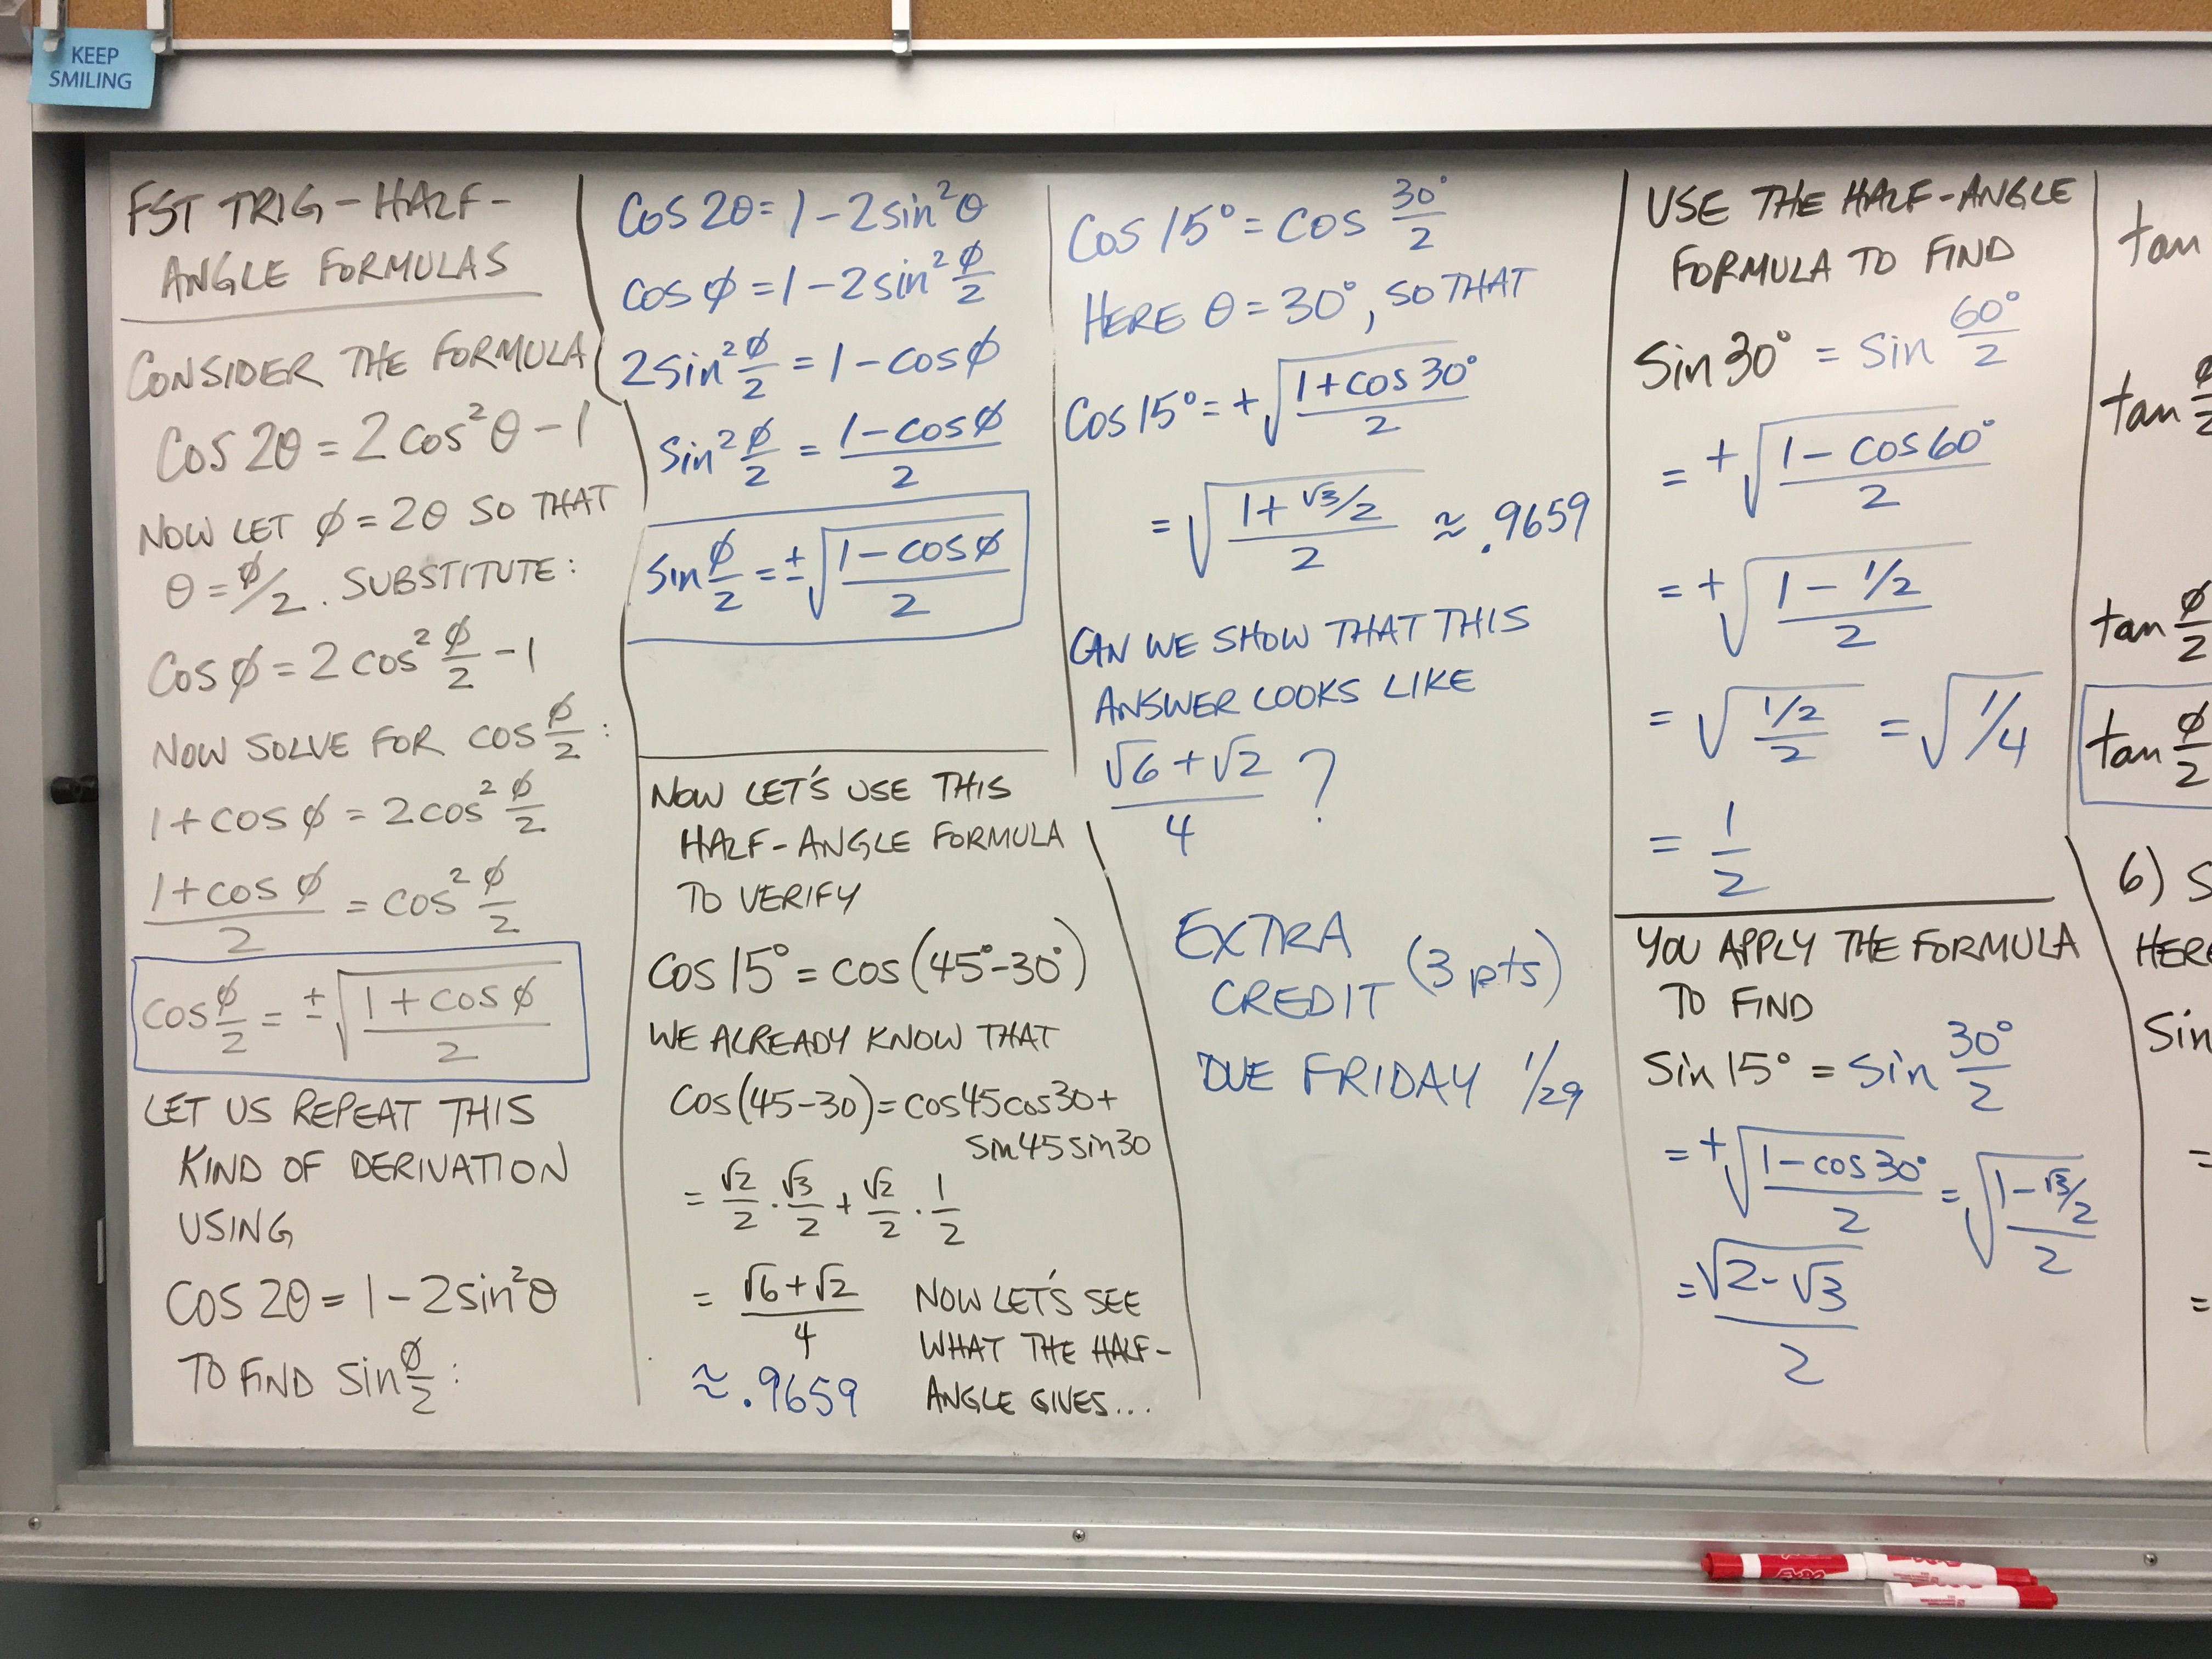 KEEP
SMILING
FST TRIG – HALF-
ANGLE FORMULAS
CONSIDER THE FORMULA
cos 2θ = 2 cos²θ – 1
NOW LET ϕ = 2θ SO THAT
θ = ϕ/2 . SUBSTITUTE:
cos ϕ = 2 cos² ϕ/2 – 1
NOW SOLVE FOR cos ϕ/2 :
1 + cos ϕ = 2 cos² ϕ/2
(1 + cos ϕ)/2 = cos² ϕ/2
cos ϕ/2 = ± √((1 + cos ϕ)/2)
LET US REPEAT THIS
KIND OF DERIVATION
USING
cos 2θ = 1 – 2 sin²θ
TO FIND sin ϕ/2 :
cos 2θ = 1 – 2 sin²θ
cos ϕ = 1 – 2 sin² ϕ/2
2 sin² ϕ/2 = 1 – cos ϕ
sin² ϕ/2 = (1 – cos ϕ)/2
sin ϕ/2 = ± √((1 – cos ϕ)/2)
NOW LET'S USE THIS
HALF-ANGLE FORMULA
TO VERIFY
cos 15° = cos (45° – 30°)
WE ALREADY KNOW THAT
cos (45 – 30) = cos 45 cos 30 +
sin 45 sin 30
= √2/2 · √3/2 + √2/2 · 1/2
= (√6 + √2)/4
≈ .9659
NOW LET'S SEE
WHAT THE HALF-
ANGLE GIVES...
cos 15° = cos 30°/2
HERE θ = 30°, SO THAT
cos 15° = + √((1 + cos 30°)/2)
= √((1 + √3/2)/2) ≈ .9659
CAN WE SHOW THAT THIS
ANSWER LOOKS LIKE
(√6 + √2)/4 ?
EXTRA
CREDIT (3 pts)
DUE FRIDAY 1/29
USE THE HALF-ANGLE
FORMULA TO FIND
sin 30° = sin 60°/2
= + √((1 – cos 60°)/2)
= + √((1 – 1/2)/2)
= √((1/2)/2) = √(1/4)
= 1/2
YOU APPLY THE FORMULA
TO FIND
sin 15° = sin 30°/2
= + √((1 – cos 30°)/2) = √((1 – √3/2)/2)
= √(2 – √3)/2
tan
tan ϕ/2
tan ϕ/2
tan ϕ/2
6) S
HERE
sin
=
=